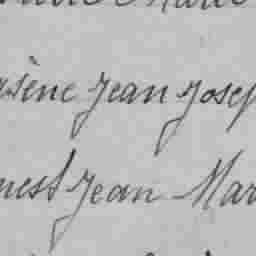 sène Jean Josep
nest Jean Mar